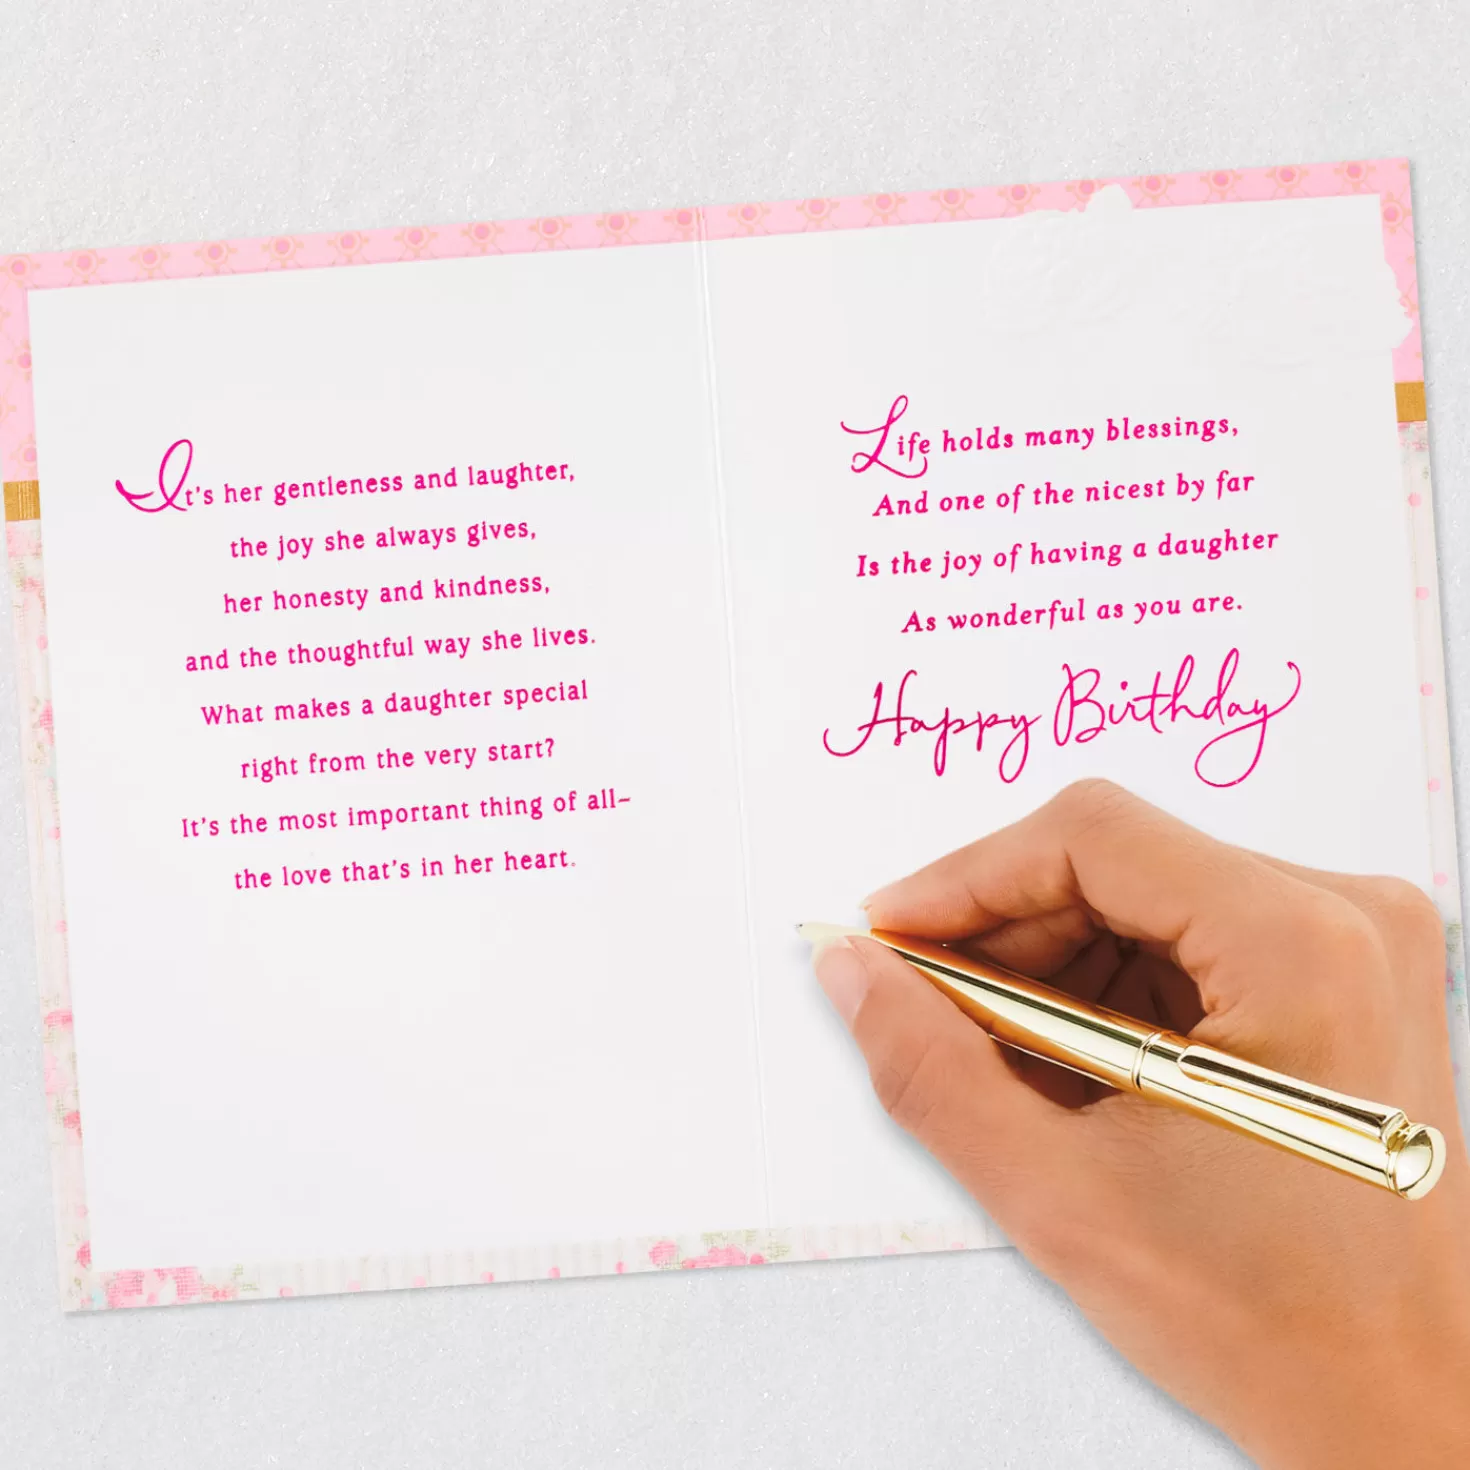 It's her gentleness and laughter,
the joy she always gives,
her honesty and kindness,
and the thoughtful way she lives.
What makes a daughter special
right from the very start?
It's the most important thing of all–
the love that's in her heart.
Life holds many blessings,
And one of the nicest by far
Is the joy of having a daughter
As wonderful as you are.
Happy Birthday